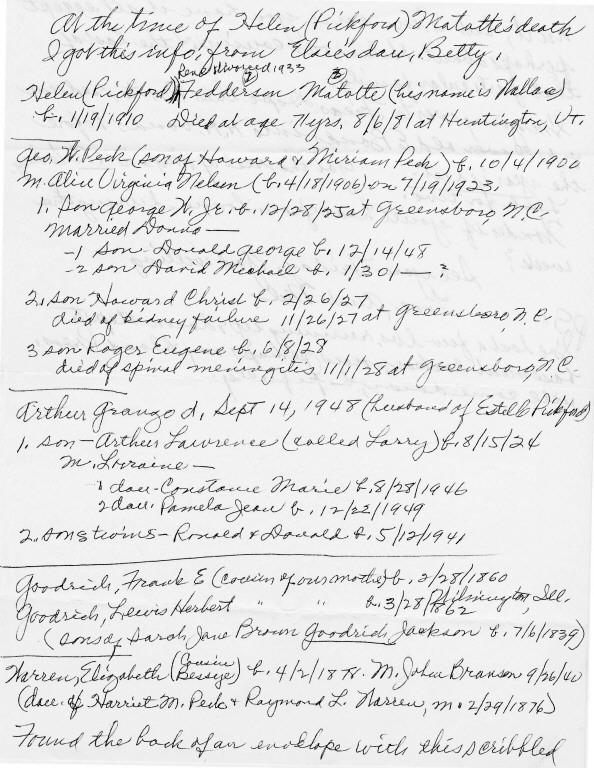 At the time of Helen (Pickford) Matotte's death
I got this info, from Elsie's dau, Betty,
Rene divorced 1933 ② ③
Helen (Pickford) Fedderson Matotte (his name is Wallace)
b. 1/19/1910 Died at age 71yrs. 8/6/81 at Huntington, VT.
Geo. W. Peck (son of Howard & Miriam Peck) b. 10/4/1900
m. Alice Virginia Nelsen (b. 4/18/1906) on 7/19/1923.
1. son George W. Jr. b. 12/28/25 at Greensboro, N.C.
married Donna —
-1 son Donald George b. 12/14/48
-2 son David Michael b. 1/30/— ?
2. son Howard Christ b. 2/26/27
died of kidney failure 11/26/27 at Greensboro, N.C.
3 son Roger Eugene b. 6/8/28
died of spinal meningitis 11/1/28 at Greensboro, N.C.
Arthur Grango d. Sept 14, 1948 (husband of Estelle Pickford)
1. son - Arthur Lawrence (called Larry) b. 8/15/24
m. Lorraine —
1 dau - Constance Marie b. 8/28/1946
2 dau. Pamela Jean b. 12/22/1949
2. sons twins - Ronald & Donald b. 5/12/1941
Goodrich, Frank E (cousin of our mother) b. 2/28/1860
Goodrich, Lewis Herbert " " b. 3/28/1862 Ill.
(sons of Sarah Jane Brown Goodrich Jackson b. 7/6/1839)
Warren, Elizabeth (Cousin Bessye) b. 4/2/1878. M. John Branson 9/26/40
(dau. of Harriet M. Peck & Raymond L. Warren, m. 2/29/1876)
Found the back of an envelope with this scribbled